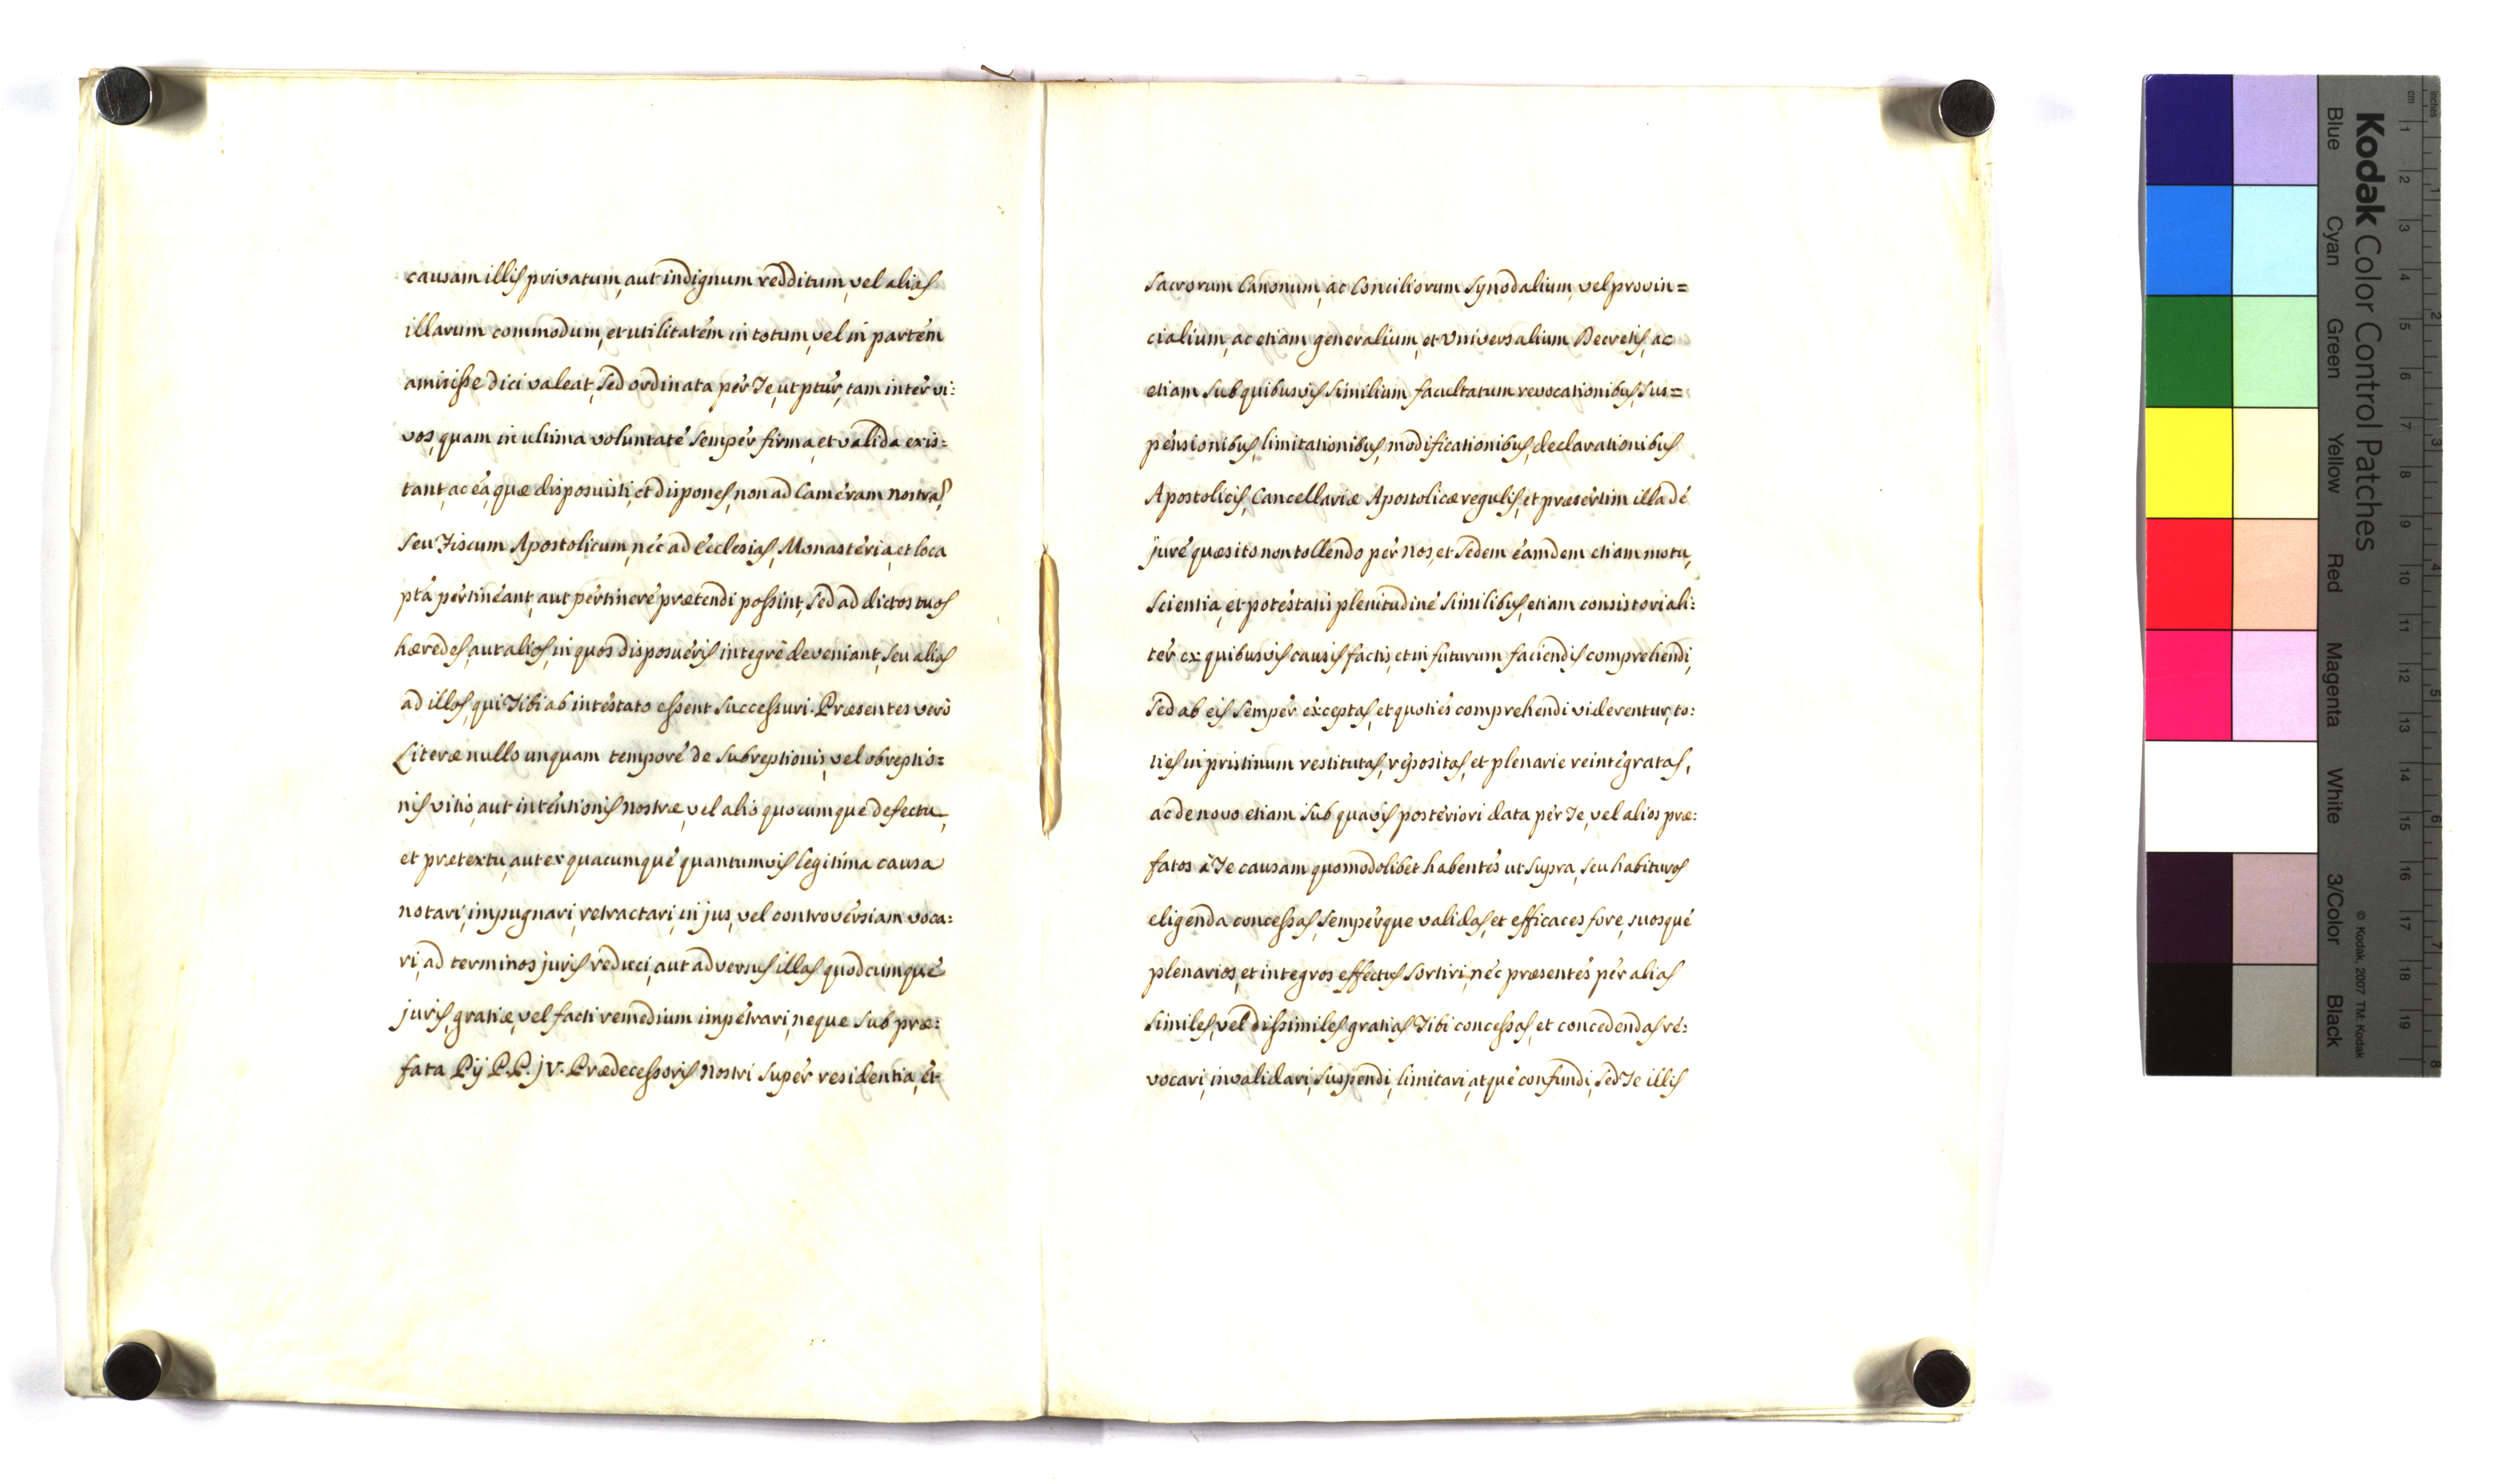 causam illis privatum, aut indignum redditum, vel alias
illarum commodum, et utilitatém in totum, vel in partém
amisisse dici valeat, sed ordinata pér Te, ut ptur, tam intér vi:
vos, quam in ultima voluntaté sempér firma, et valida exis=
tant, ac éa, quæ disposuisti, et dispones, non ad Caméram nostrã,
seu Fiscum Apostolicum, néc ad Ecclesias, Monastéria, et loca
ptá pértinéant, aut pértineré prætendi possint, sed ad dictos tuos
hæredes, aut alios, in quos disposuéris integré deveniant, seu alias
ad illos, qui Tibi ab intéstato essent successuri. Præsentes veró
Literæ nullo unquam temporé de subreptionis, vel obreptio=
nis vitio, aut inténtionis nostræ, vel alio quocumque defectu,
et prætextu, aut ex quacumqué quantumvis legitima causa
notari, impugnari, retractari, in jus, vel controvérsiam voca:
ri, ad terminos juris reduci, aut adversus illas quodcumqué
juris, gratiæ, vel facti remedium impétrari, neque sub præ:
fata Pij P.P. jv. Prædecessoris nostri supér residentia, ét
sacrorum Canonum, ac Conciliorum Synodalium, vel provin=
cialium, ac etiam generalium, et Universalium Decretis, ac
etiam sub quibusvis similium facultatum revocationibus, sus=
pénsionibus, limitationibus, modificationibus, declarationibus
Apostolicis, Cancellariæ Apostolicæ regulis, et præsértim illa dé
juré quæsito non tollendo pér nos, et Sedem éamdem etiam motu,
scientia, et potéstatis plenitudiné similibus, etiam consistoriali:
tér ex quibusvis causis factis, et in futurum faciendis comprehendi,
sed ab eis sempér éxceptas, et quotiés comprehendi viderentur, to:
ties in pristinum restitutas, répositas, et plenarie reintégratas,
ac de novo etiam sub quavis postériori data pér Te, vel alios præ:
fatos à Te causam quomodolibet habentés ut supra, seu habituros
eligenda concessas, sempérque validas, et efficaces fore, suosqué
plenarios, et integros effectus sortiri, néc præsentés pér alias
similes, vel dissimiles gratias Tibi concessas, et concedendas ré:
vocari, invalidari, suspendi, limitari, atqué confundi, sed Te illis
Kodak Color Control Patches
Blue Cyan Green Yellow Red Magenta White 3/Color Black
© Kodak, 2007 TM: Kodak
cm 1 2 3 4 5 6 7 8 9 10 11 12 13 14 15 16 17 18 19
inches 1 2 3 4 5 6 7 8